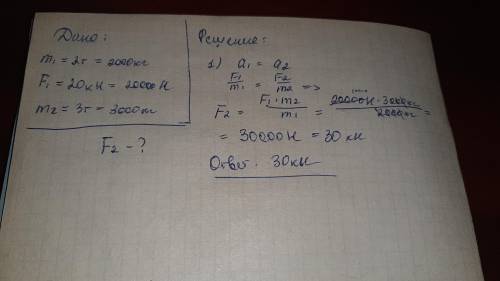 Дано:
m₁ = 2т = 2000кг
F₁ = 20кН = 20000Н
m₂ = 3т = 3000кг
F₂ - ?
Решение:
1) a₁ = a₂
F₁/m₁ = F₂/m₂ =>
F₂ = F₁·m₂/m₁ = 20000Н·3000кг/2000кг =
= 30000Н = 30кН
Ответ: 30кН